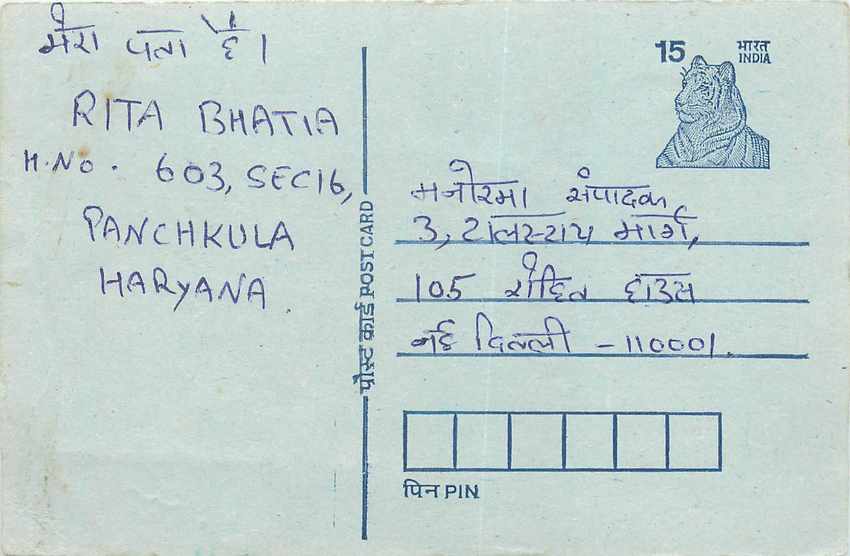 मेरा पता है।
RITA BHATIA
H.No. 603, SEC16,
PANCHKULA
HARYANA
पोस्ट कार्ड POST CARD
15 भारत
INDIA
मनोरमा संपादक
3, टालस्टाय मार्ग,
105 रोहित हाउस
नई दिल्ली -110001.
पिन PIN